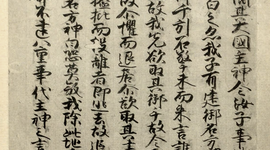 問其大國主神今汝子事
白之亦我子有建御名方
千引石擎手末而来言誰
故我先欲取其御手故令
故尓懼而退居尓欲取其建
搤批而投離者即逃去故追
名方神白恐莫殺我除此地
不違八重事代主神之言